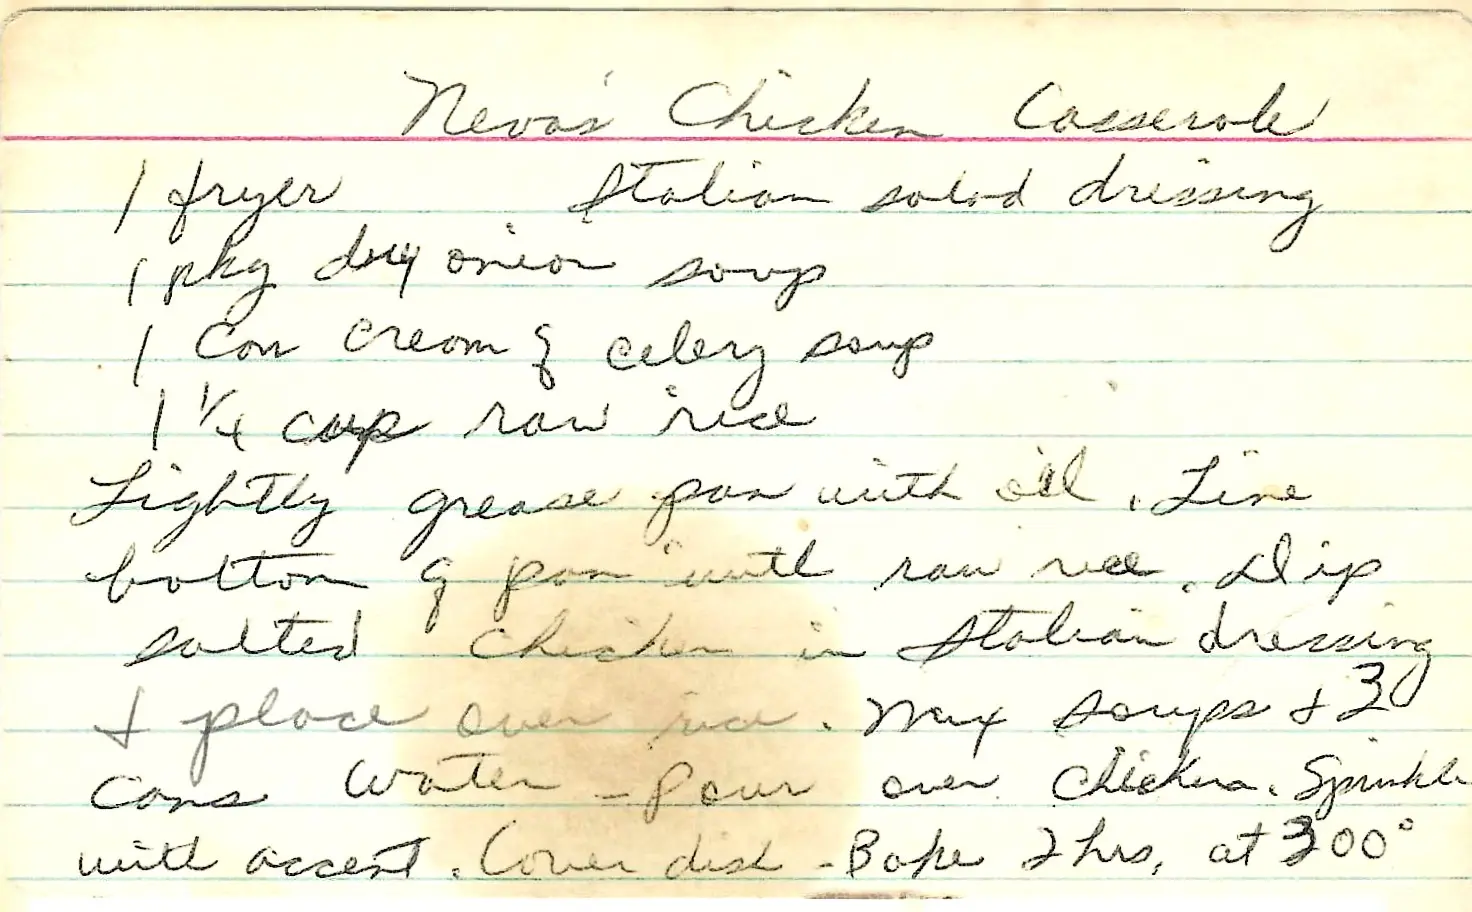 Neva's Chicken Casserole
1 fryer Italian salad dressing
1 pkg dry onion soup
1 can cream of celery soup
1 1/4 cup raw rice
Lightly grease pan with oil. Line
bottom of pan with raw rice. Dip
salted chicken in Italian dressing
& place over rice. Mix soups & 3
cans water - Pour over chicken. Sprinkle
with accent. Cover dish - Bake 2 hrs. at 300°